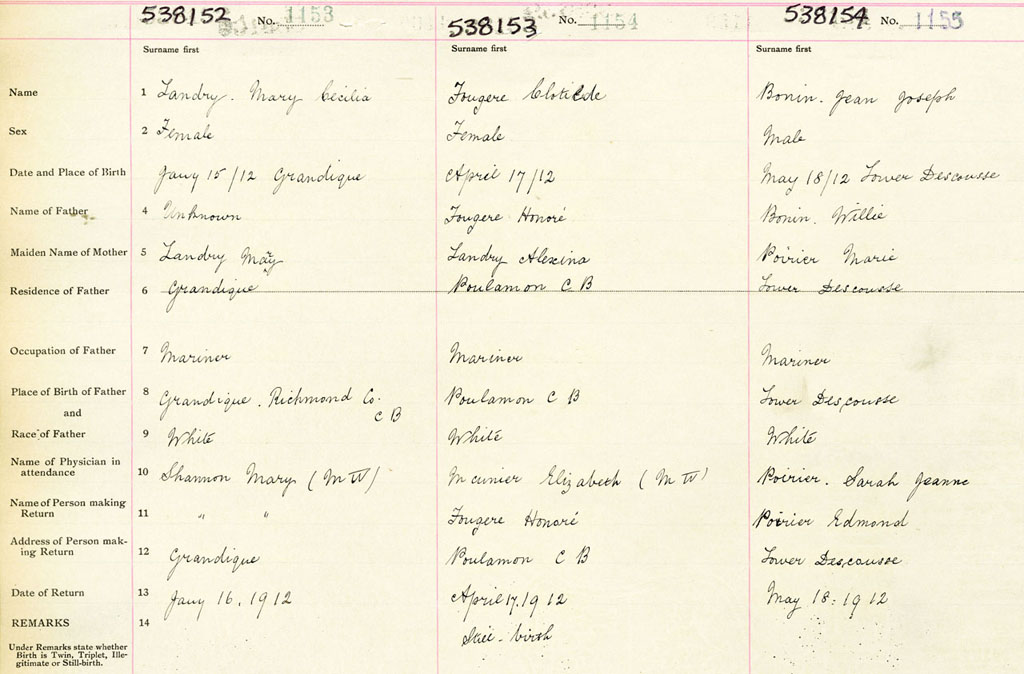 538152 No. 1153 538153 No. 1154 538154 No. 1155
Surname first Surname first Surname first
Name 1 Landry. Mary Cecilia Fougere Clotilde Bonin. Jean Joseph
Sex 2 Female Female Male
Date and Place of Birth Jany 15/12 Grandique April 17/12 May 18/12 Lower Descousse
Name of Father 4 Unknown Fougere Honoré Bonin. Willie
Maiden Name of Mother 5 Landry May Landry Alexina Poirier Marie
Residence of Father 6 Grandique Poulamon C B Lower Descousse
Occupation of Father 7 Mariner Mariner Mariner
Place of Birth of Father 8 Grandique. Richmond Co. Poulamon C B Lower Descousse
and C B
Race of Father 9 White White White
Name of Physician in
attendance 10 Shannon Mary (M W) Meunier Elizabeth (M W) Poirier. Sarah Jeanne
Name of Person making
Return 11 " " Fougere Honoré Poirier Edmond
Address of Person mak-
ing Return 12 Grandique Poulamon C B Lower Descousse
Date of Return 13 Jany 16. 1912 April 17. 1912 May 18: 1912
REMARKS 14 Still-birth
Under Remarks state whether
Birth is Twin, Triplet, Ille-
gitimate or Still-birth.